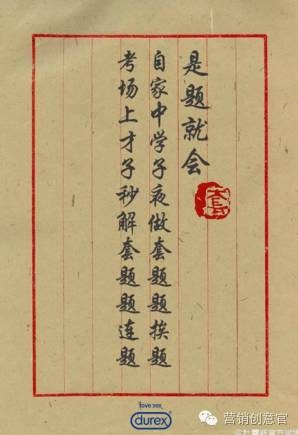 是题就会
自家中学子夜做套题题挨题
考场上才子秒解套题题连题
套
love sex
durex
营销创意官